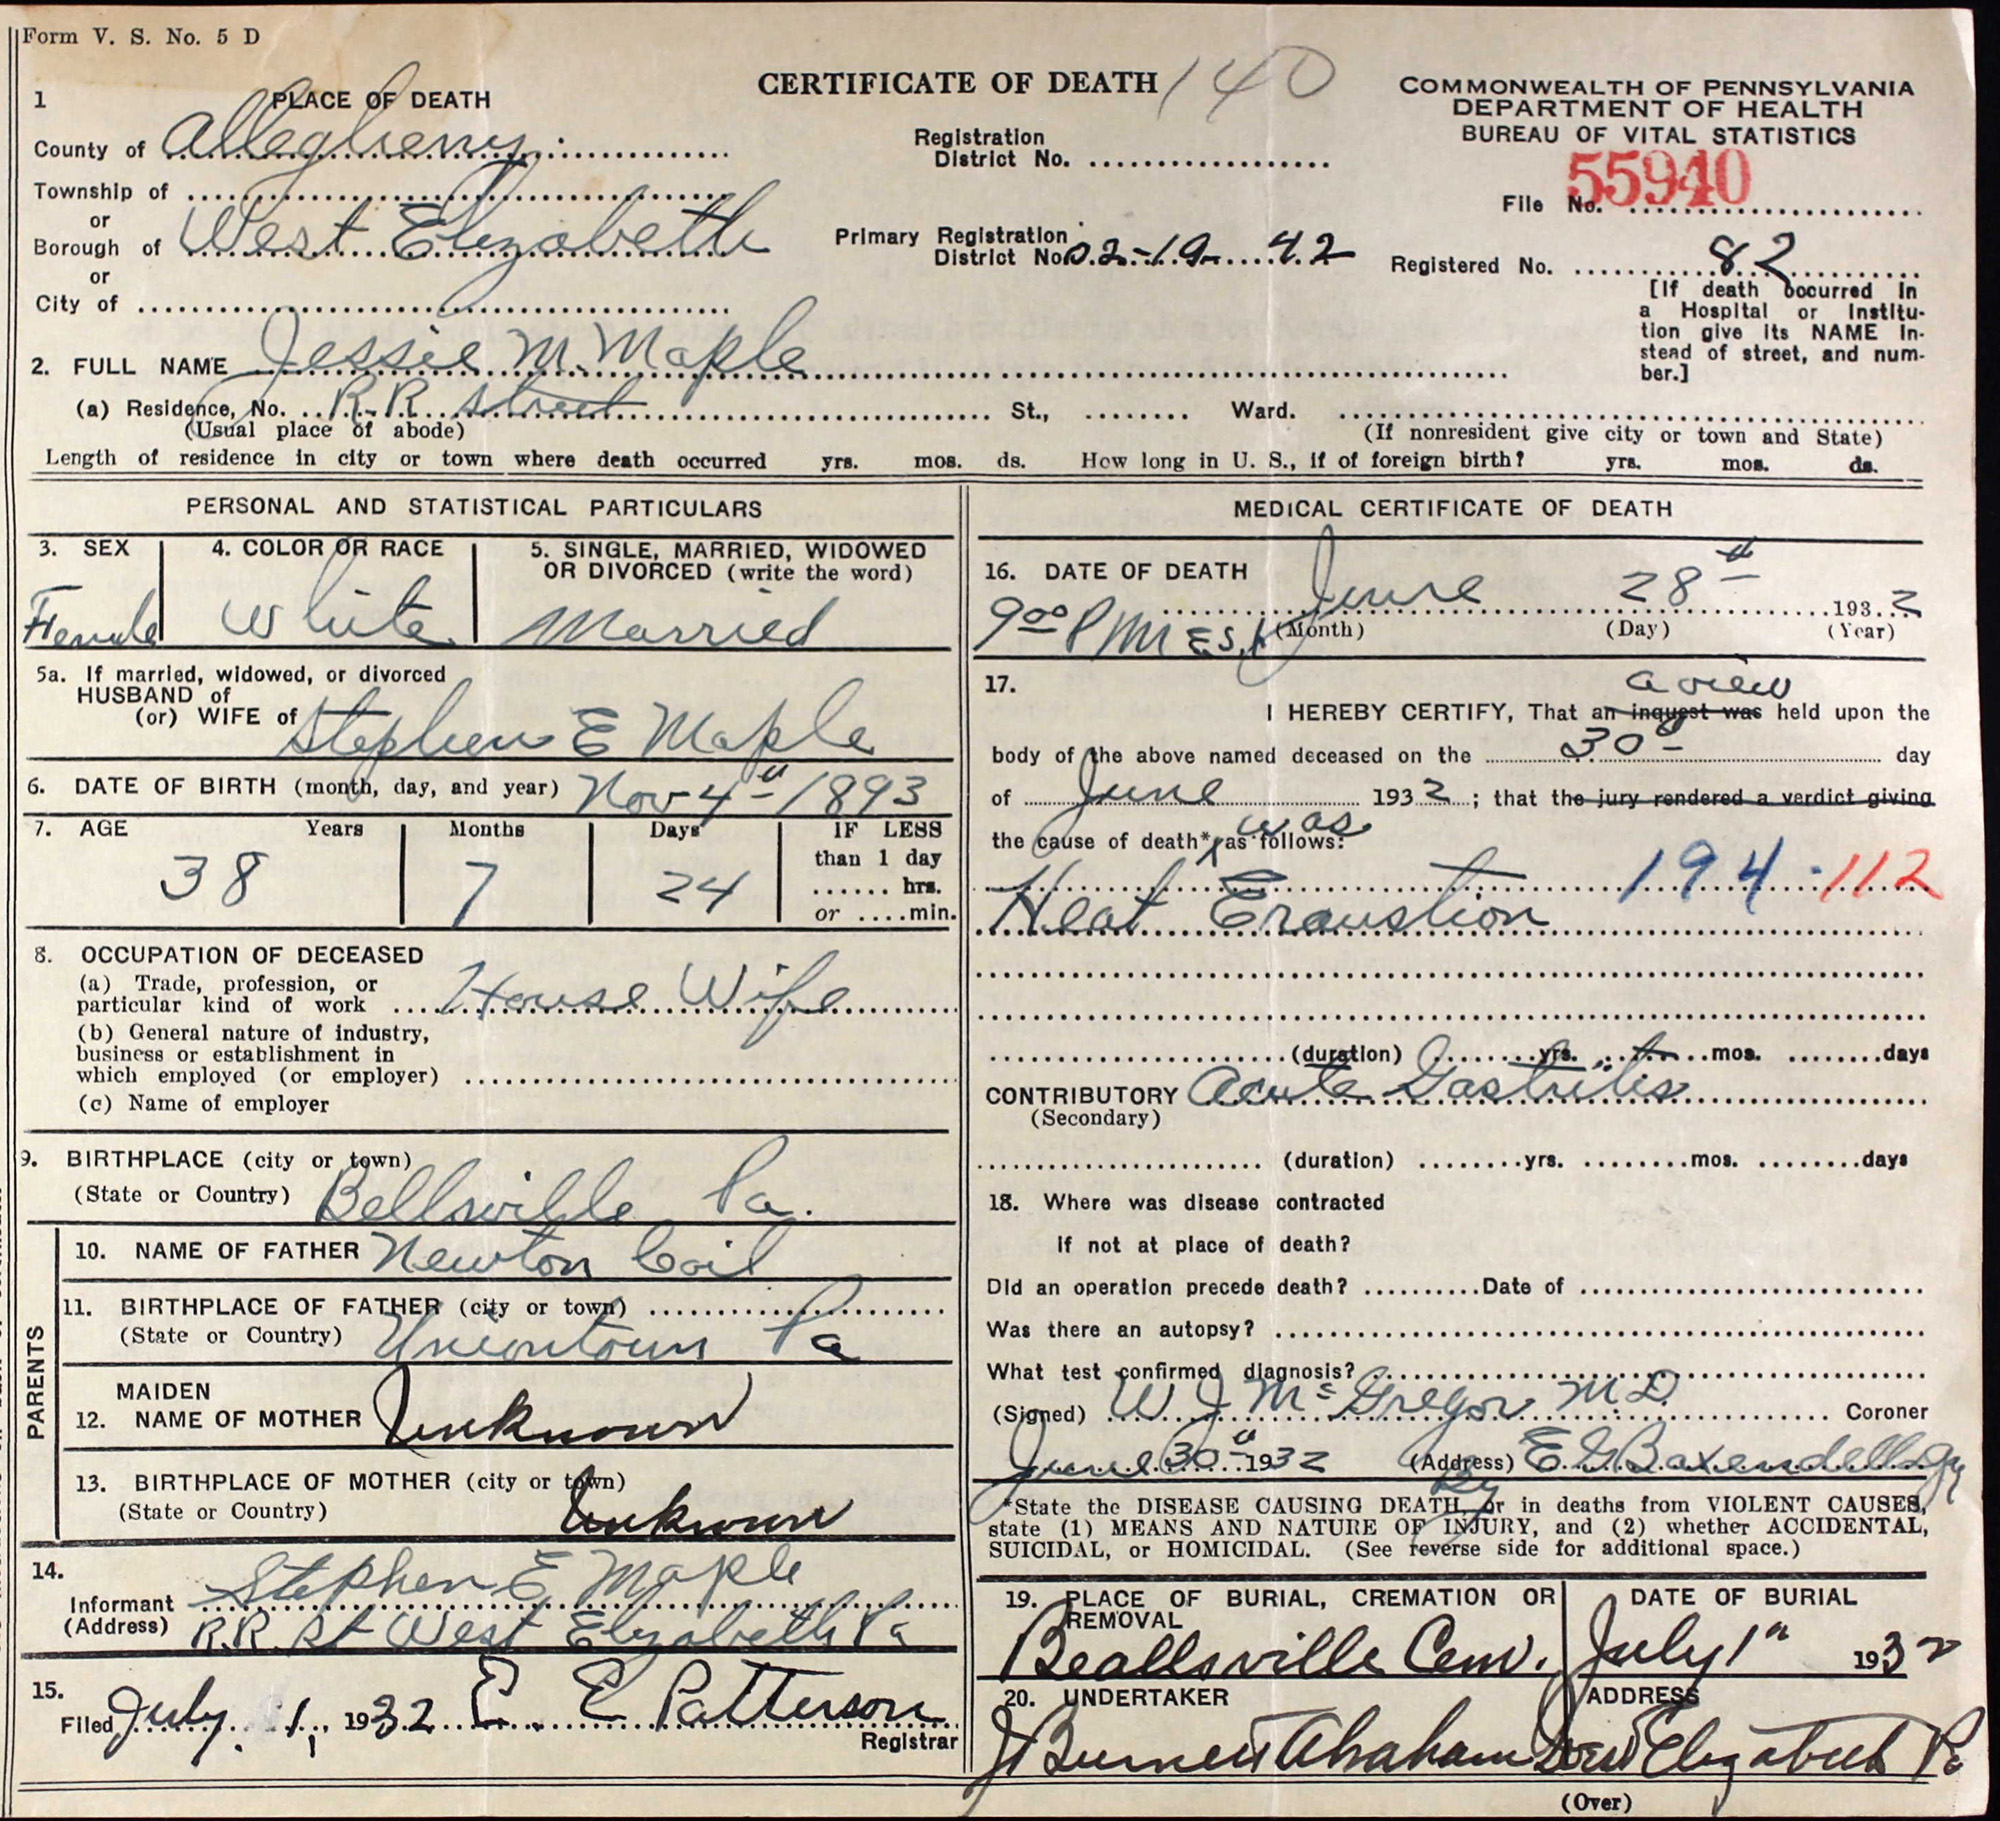 Form V. S. No. 5 D
CERTIFICATE OF DEATH 140
COMMONWEALTH OF PENNSYLVANIA
DEPARTMENT OF HEALTH
BUREAU OF VITAL STATISTICS
1 PLACE OF DEATH
County of Allegheny
Township of
or
Borough of West Elizabeth
or
City of
Registration
District No.
Primary Registration
District No. 02-19-42
55940
File No.
Registered No. 82
[If death occurred in
a Hospital or Institu-
tion give its NAME in-
stead of street, and num-
ber.]
2. FULL NAME Jessie M. Maple
(a) Residence, No. R.R. street St., Ward.
(Usual place of abode) (If nonresident give city or town and State)
Length of residence in city or town where death occurred yrs. mos. ds. How long in U. S., if of foreign birth? yrs. mos. ds.
PERSONAL AND STATISTICAL PARTICULARS
3. SEX 4. COLOR OR RACE 5. SINGLE, MARRIED, WIDOWED
OR DIVORCED (write the word)
Female White Married
5a. If married, widowed, or divorced
HUSBAND of
(or) WIFE of Stephen E Maple
6. DATE OF BIRTH (month, day, and year) Nov 4th 1893
7. AGE Years Months Days IF LESS
than 1 day
...... hrs.
or ....min.
38 7 24
8. OCCUPATION OF DECEASED
(a) Trade, profession, or
particular kind of work House Wife
(b) General nature of industry,
business or establishment in
which employed (or employer)
(c) Name of employer
9. BIRTHPLACE (city or town)
(State or Country) Bellsville Pa.
PARENTS
10. NAME OF FATHER Newton Cail
11. BIRTHPLACE OF FATHER (city or town)
(State or Country) Uniontown Pa
MAIDEN
12. NAME OF MOTHER Unknown
13. BIRTHPLACE OF MOTHER (city or town)
(State or Country) Unknown
14.
Informant Stephen E Maple
(Address) R.R. St West Elizabeth Pa
15.
Filed July 1, 1932 E. E Patterson
Registrar
MEDICAL CERTIFICATE OF DEATH
16. DATE OF DEATH
June 28th 1932
9 00 P M E S t (Month) (Day) (Year)
17. a view
I HEREBY CERTIFY, That an inquest was held upon the
body of the above named deceased on the 30 day
of June 1932; that the jury rendered a verdict giving
was
the cause of death* as follows:
194-112
Heat Exaustion
(duration) yrs. mos. days
CONTRIBUTORY Acute Gastritis
(Secondary)
(duration) yrs. mos. days
18. Where was disease contracted
if not at place of death?
Did an operation precede death? Date of
Was there an autopsy?
What test confirmed diagnosis?
(Signed) W J McGregor M D Coroner
June 30th 1932 (Address) E G Baxendell
By
*State the DISEASE CAUSING DEATH, or in deaths from VIOLENT CAUSES,
state (1) MEANS AND NATURE OF INJURY, and (2) whether ACCIDENTAL,
SUICIDAL, or HOMICIDAL. (See reverse side for additional space.)
19. PLACE OF BURIAL, CREMATION OR
REMOVAL
Beallsville Cem.
DATE OF BURIAL
July 1st 1932
20. UNDERTAKER ADDRESS
J Burnett Abraham West Elizabeth Pa
(Over)